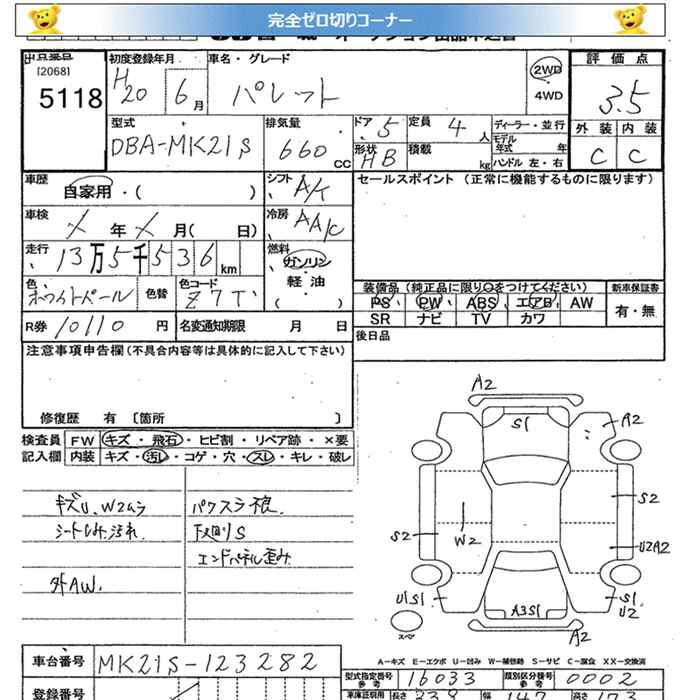 完全ゼロ切りコーナー
出品番号 初度登録年月 車名・グレード 2WD 評価点
[2068] H20 6月 パレット 4WD 3.5
5118
型式 排気量 ドア 5 定員 4人 ディーラー・並行 外装 内装
DBA-MK21S 660CC 形状 HB 積載 kg モデル年式 年 C C
ハンドル 左・右
車歴 自家用・( ) シフト セールスポイント (正常に機能するものに限ります)
車検 年 月( 日) 冷房 AAC
走行 13万5千536km 燃料 ガソリン・軽油 ( )
色 ホワイトパール 色替 色コード Z7T 装備品 (純正品に限り○をつけてください) 新車保証書
PS PW ABS エアB AW 有・無
R券 10110円 名変通知期限 月 日 SR ナビ TV カワ
注意事項申告欄(不具合内容等は具体的に記入して下さい) 後日品
修復歴 有 〔箇所 〕
検査員 FW キズ・飛石・ヒビ割・リペア跡・×要
記入欄 内装 キズ・汚レ・コゲ・穴・スレ・キレ・破レ
キズU、W2ムラ パワスラ
シートしみ汚れ 下廻りS
エンドパネル歪み
外AW.
A2
S1 A2
S2
S2 W2 U2A2
U1S1 A3S1 S1
U2
スペア A2
A-キズ E-エクボ U-凹み W-補修跡 S-サビ C-腐食 XX-交換済
車台番号 MK21S-123282
型式指定番号 参考 16033 類別区分番号 参考 0002
登録番号 車庫証明用 参考 長さ 339 幅 147 高さ 173